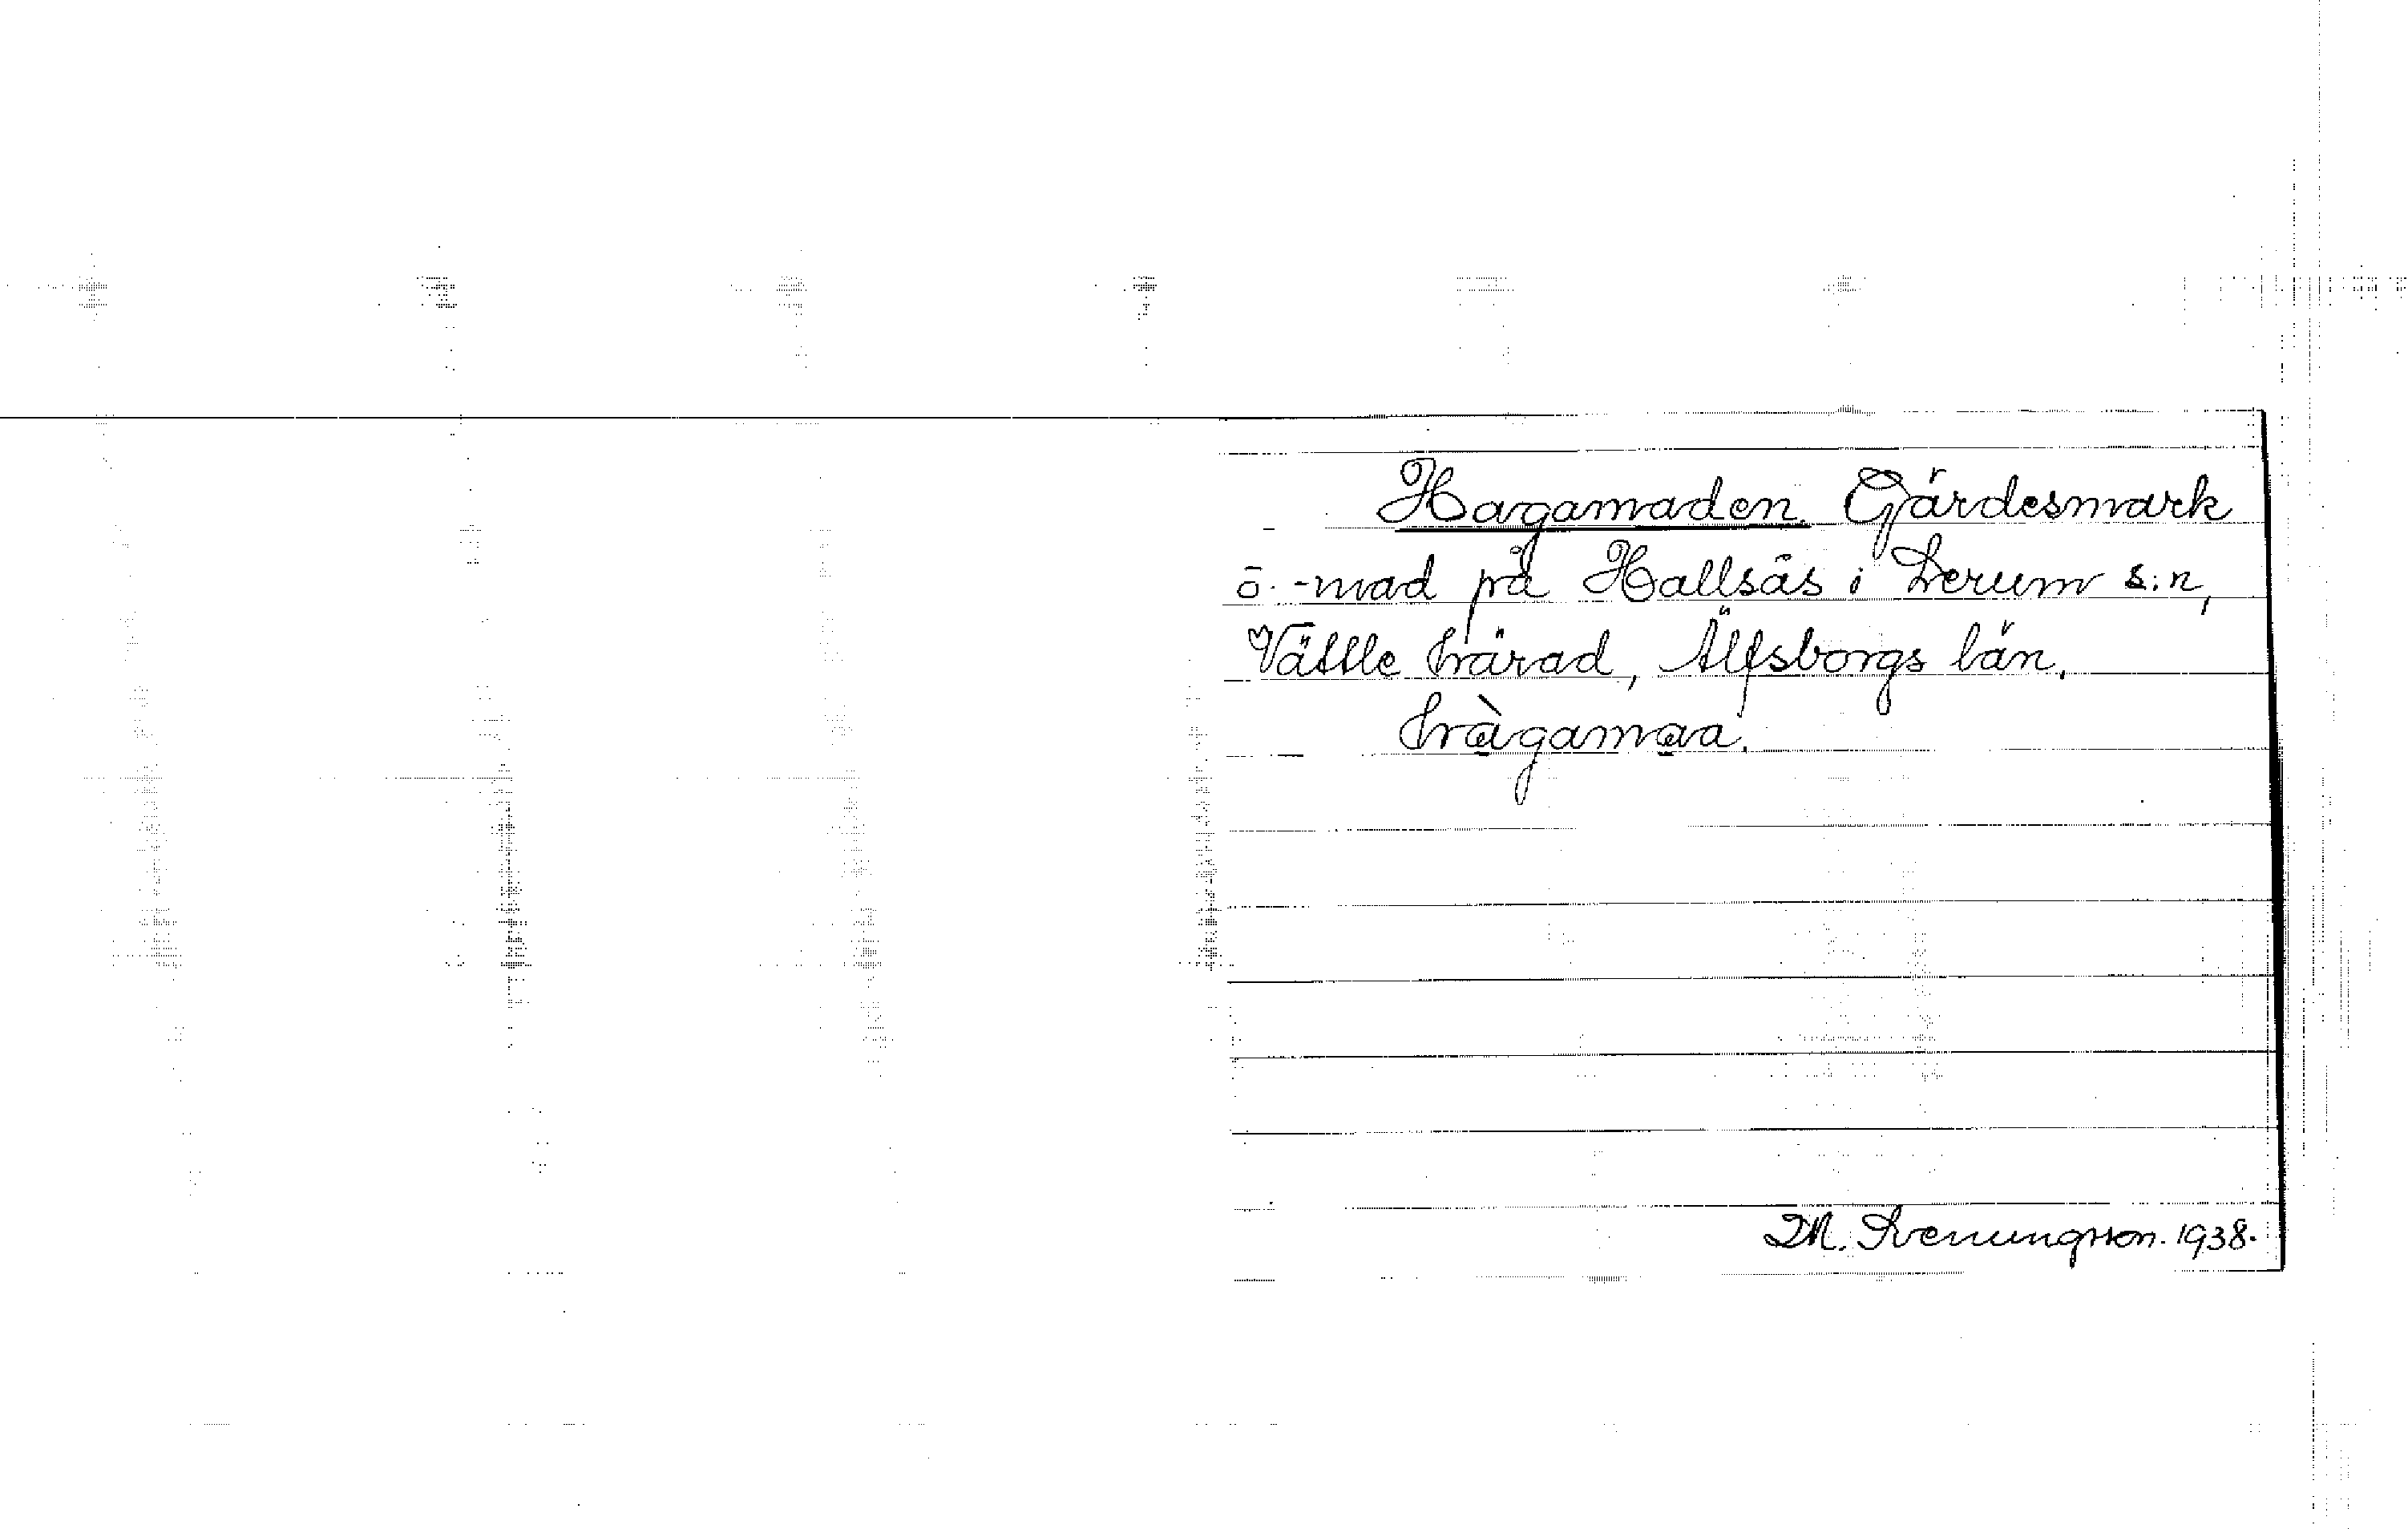 Hagamaden. Gärdesmark
o. -mad på Hallsås i Lerum s:n,
Vättle härad, Älfsborgs län.
hàgamaa.
M. Svenungsson. 1938.